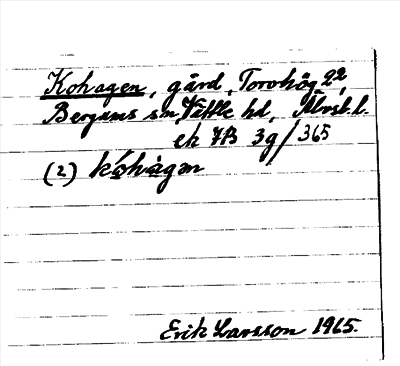 Kohagen, gård, Torshög 22,
Bergums sn, Vättle hd, Älvsb. l.
ek 7B 3g/365
(2) kóhàgən
Erik Larsson 1965.